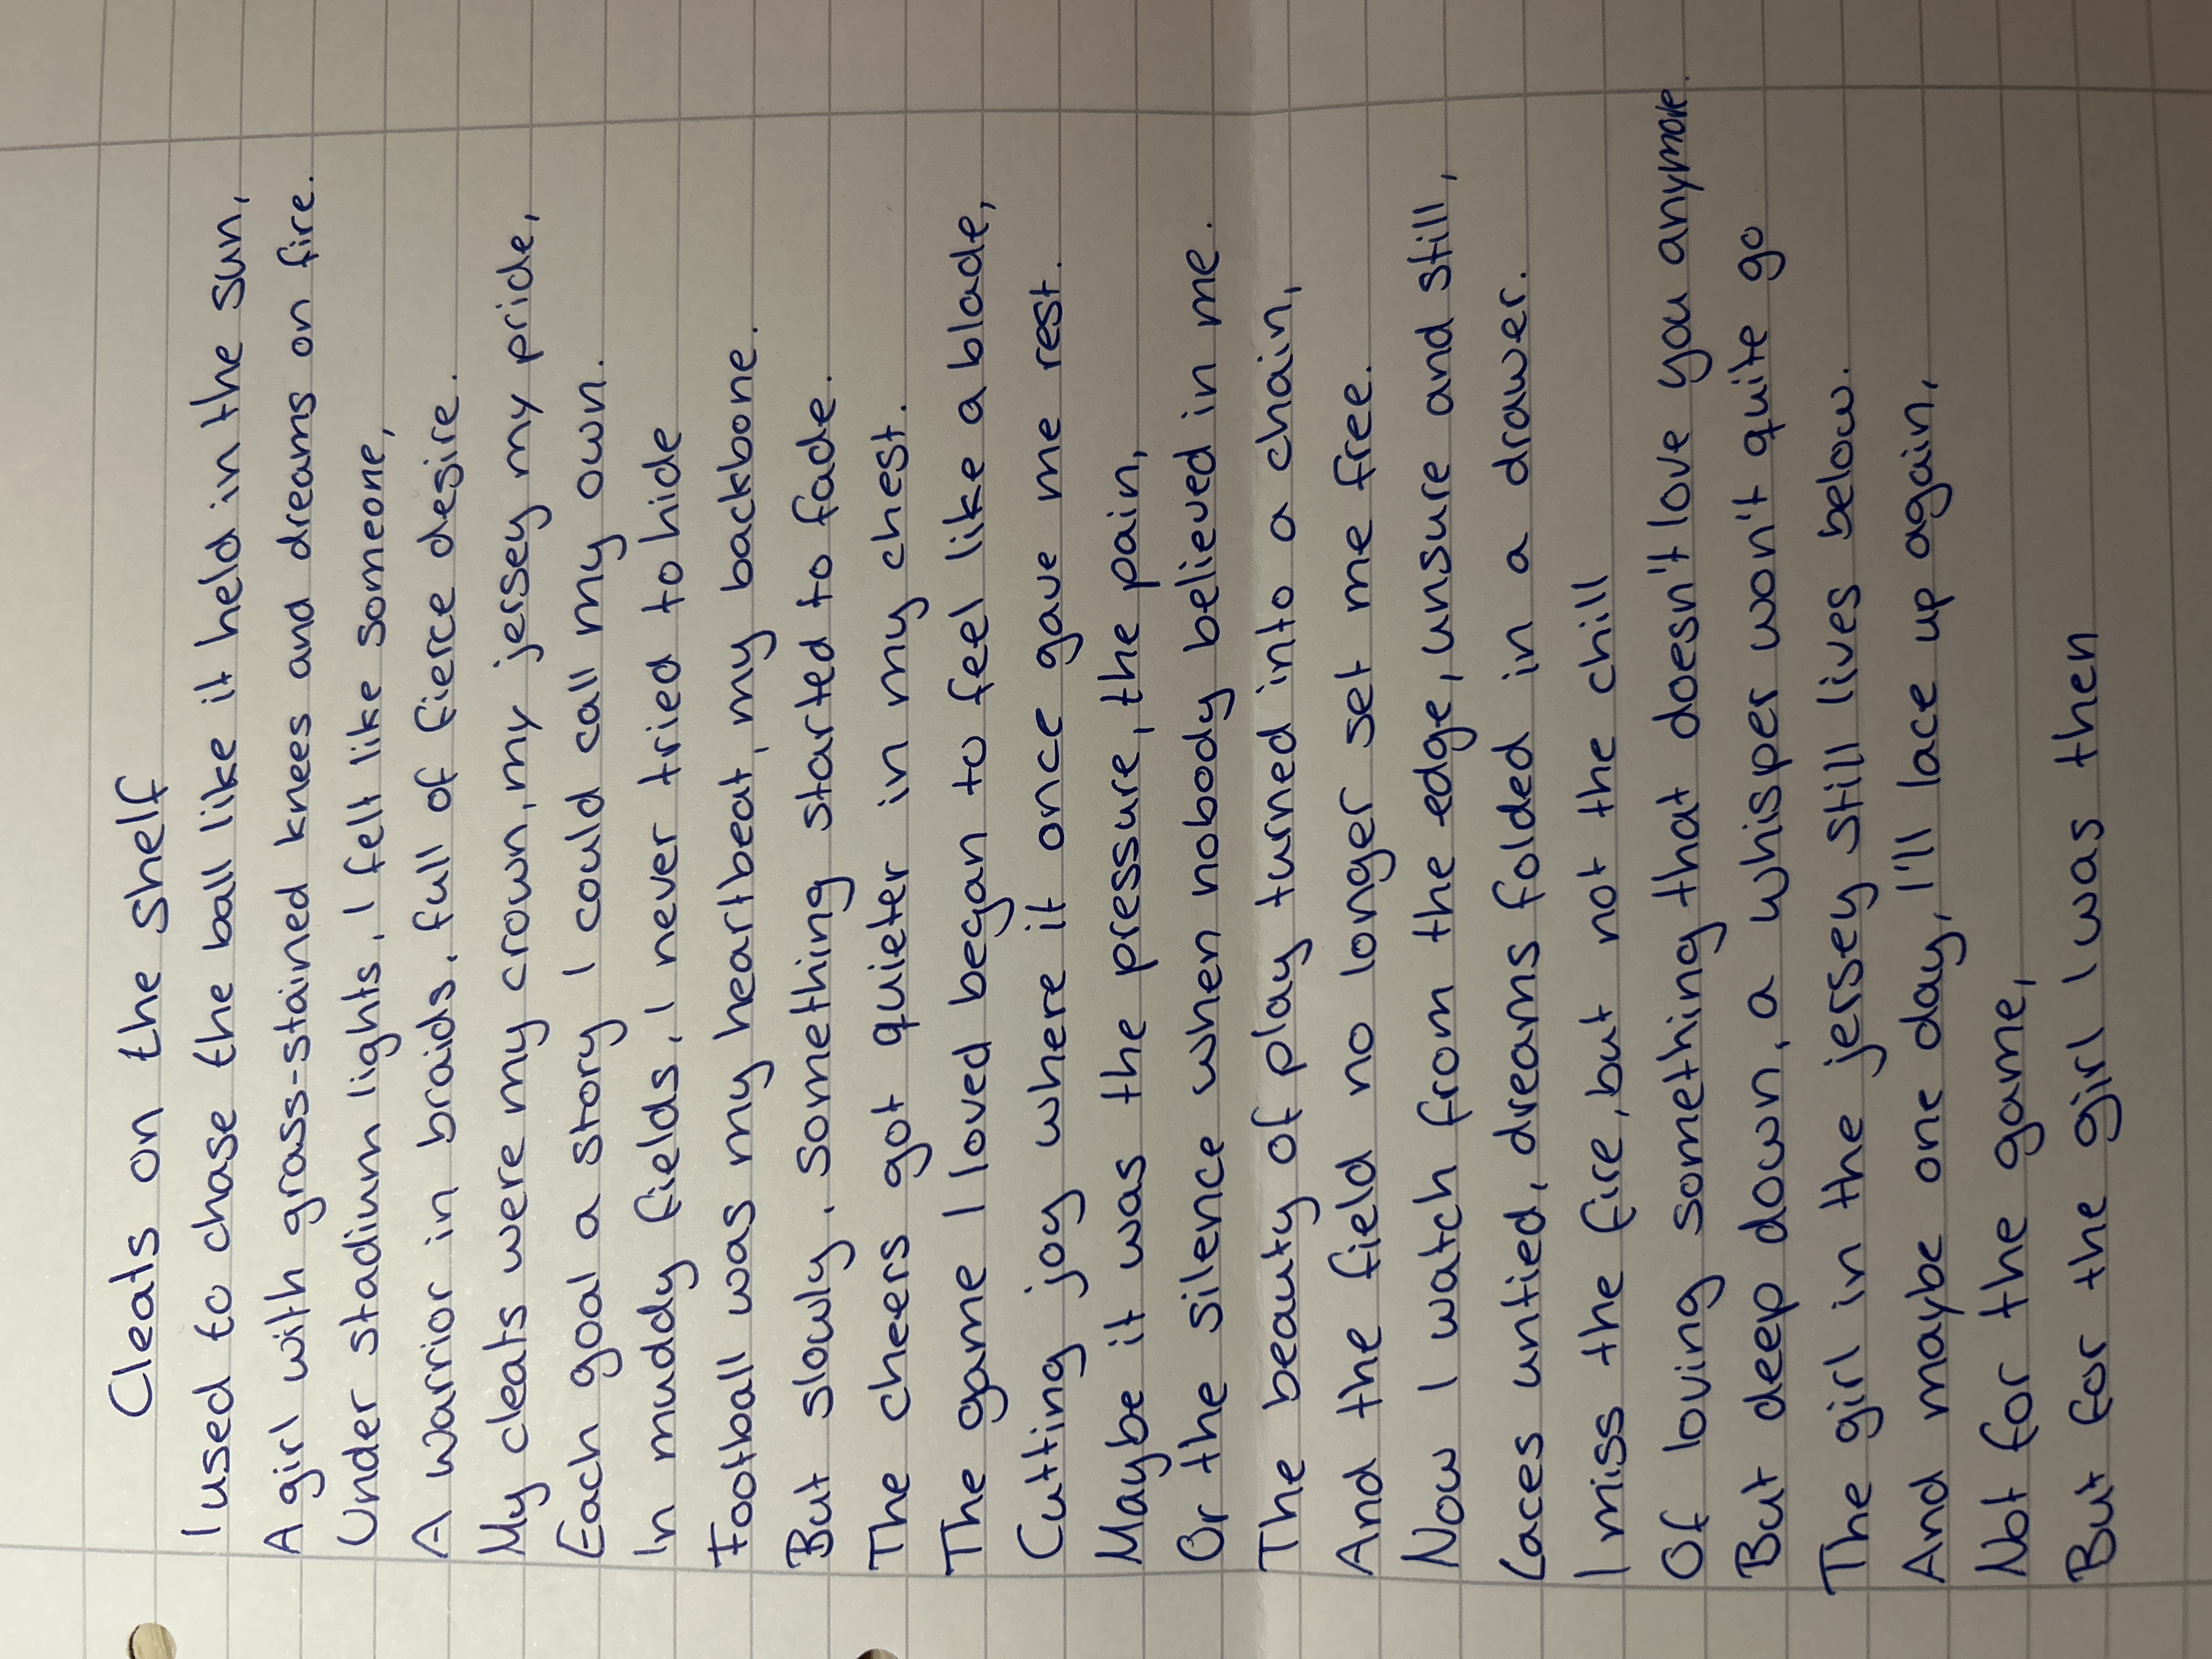 Cleats on the shelf
I used to chase the ball like it held in the sun,
A girl with grass-stained knees and dreams on fire.
Under stadium lights, I felt like someone,
A warrior in braids, full of fierce desire.
My cleats were my crown, my jersey my pride,
Each goal a story I could call my own.
In muddy fields, I never tried to hide
Football was my heartbeat, my backbone.
But slowly, something started to fade.
The cheers got quieter in my chest.
The game I loved began to feel like a blade,
Cutting joy where it once gave me rest.
Maybe it was the pressure, the pain,
Or the silence when nobody believed in me.
The beauty of play turned into a chain,
And the field no longer set me free.
Now I watch from the edge, unsure and still,
Laces untied, dreams folded in a drawer.
I miss the fire, but not the chill
Of loving something that doesn't love you anymore.
But deep down, a whisper won't quite go
The girl in the jersey still lives below.
And maybe one day, I'll lace up again,
Not for the game,
But for the girl I was then